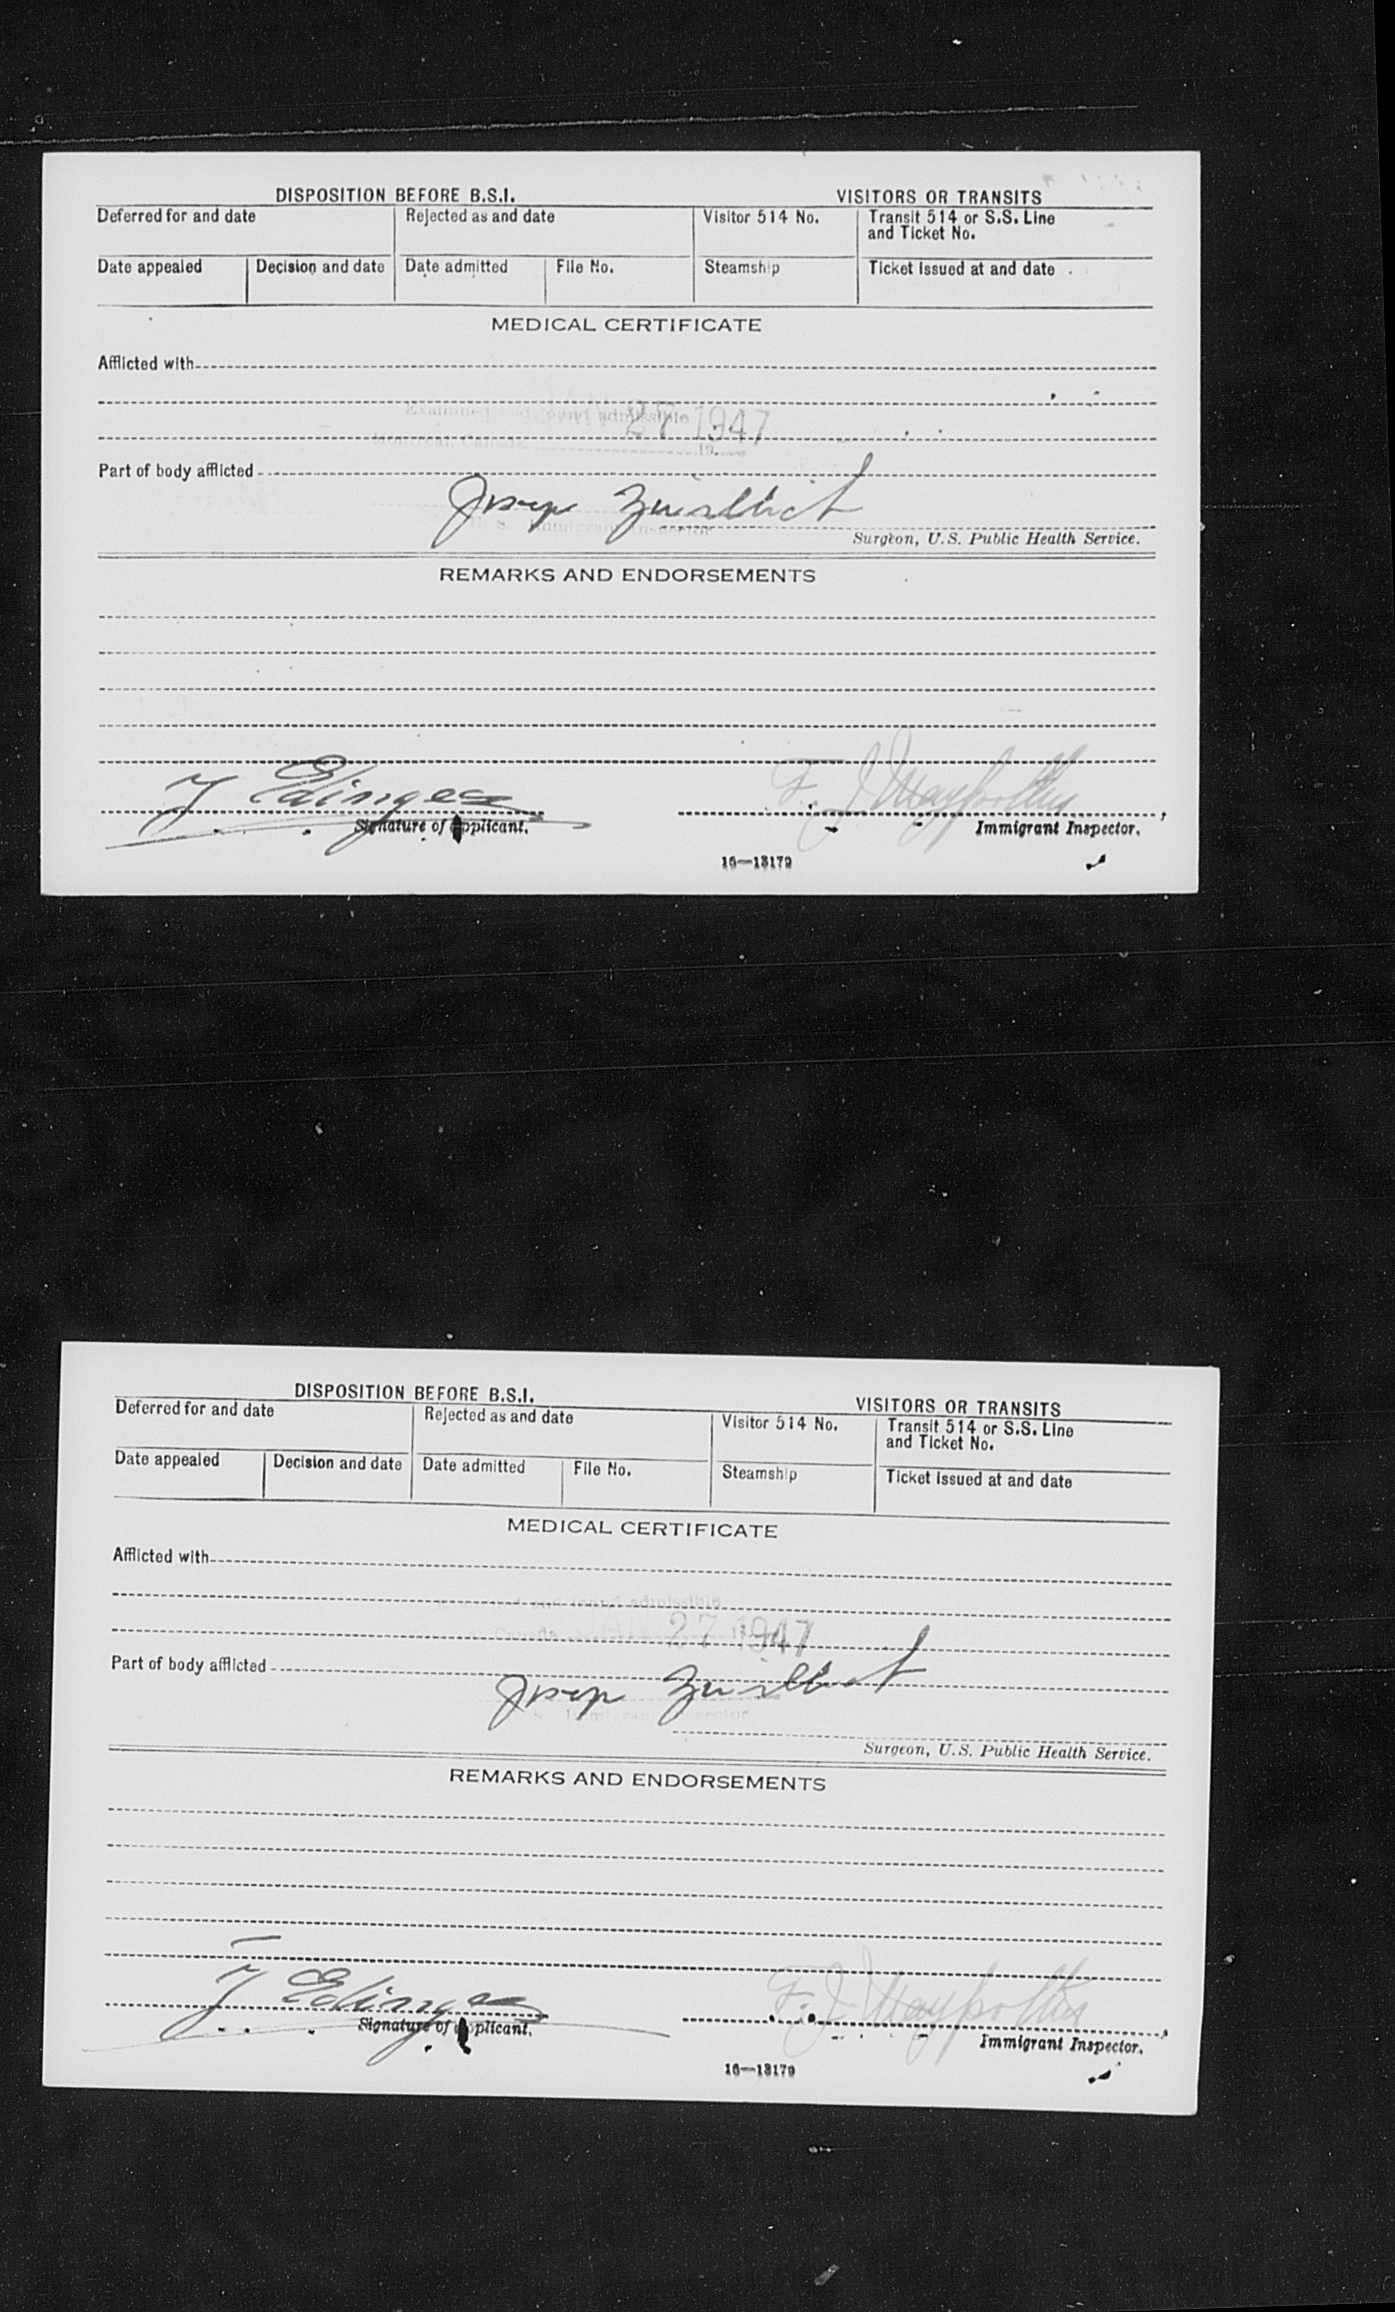 DISPOSITION BEFORE B.S.I. VISITORS OR TRANSITS
Deferred for and date Rejected as and date Visitor 514 No. Transit 514 or S.S. Line
and Ticket No.
Date appealed Decision and date Date admitted File No. Steamship Ticket issued at and date
MEDICAL CERTIFICATE
Afflicted with
admissible
27 1947
19
Part of body afflicted
Surgeon, U.S. Public Health Service.
REMARKS AND ENDORSEMENTS
Edinger
Signature of applicant.
F. J.
Immigrant Inspector.
16—13179
DISPOSITION BEFORE B.S.I. VISITORS OR TRANSITS
Deferred for and date Rejected as and date Visitor 514 No. Transit 514 or S.S. Line
and Ticket No.
Date appealed Decision and date Date admitted File No. Steamship Ticket issued at and date
MEDICAL CERTIFICATE
Afflicted with
admissible
27 1947
Part of body afflicted
Surgeon, U.S. Public Health Service.
REMARKS AND ENDORSEMENTS
Edinger
Signature of applicant.
F. J.
Immigrant Inspector.
16—13179